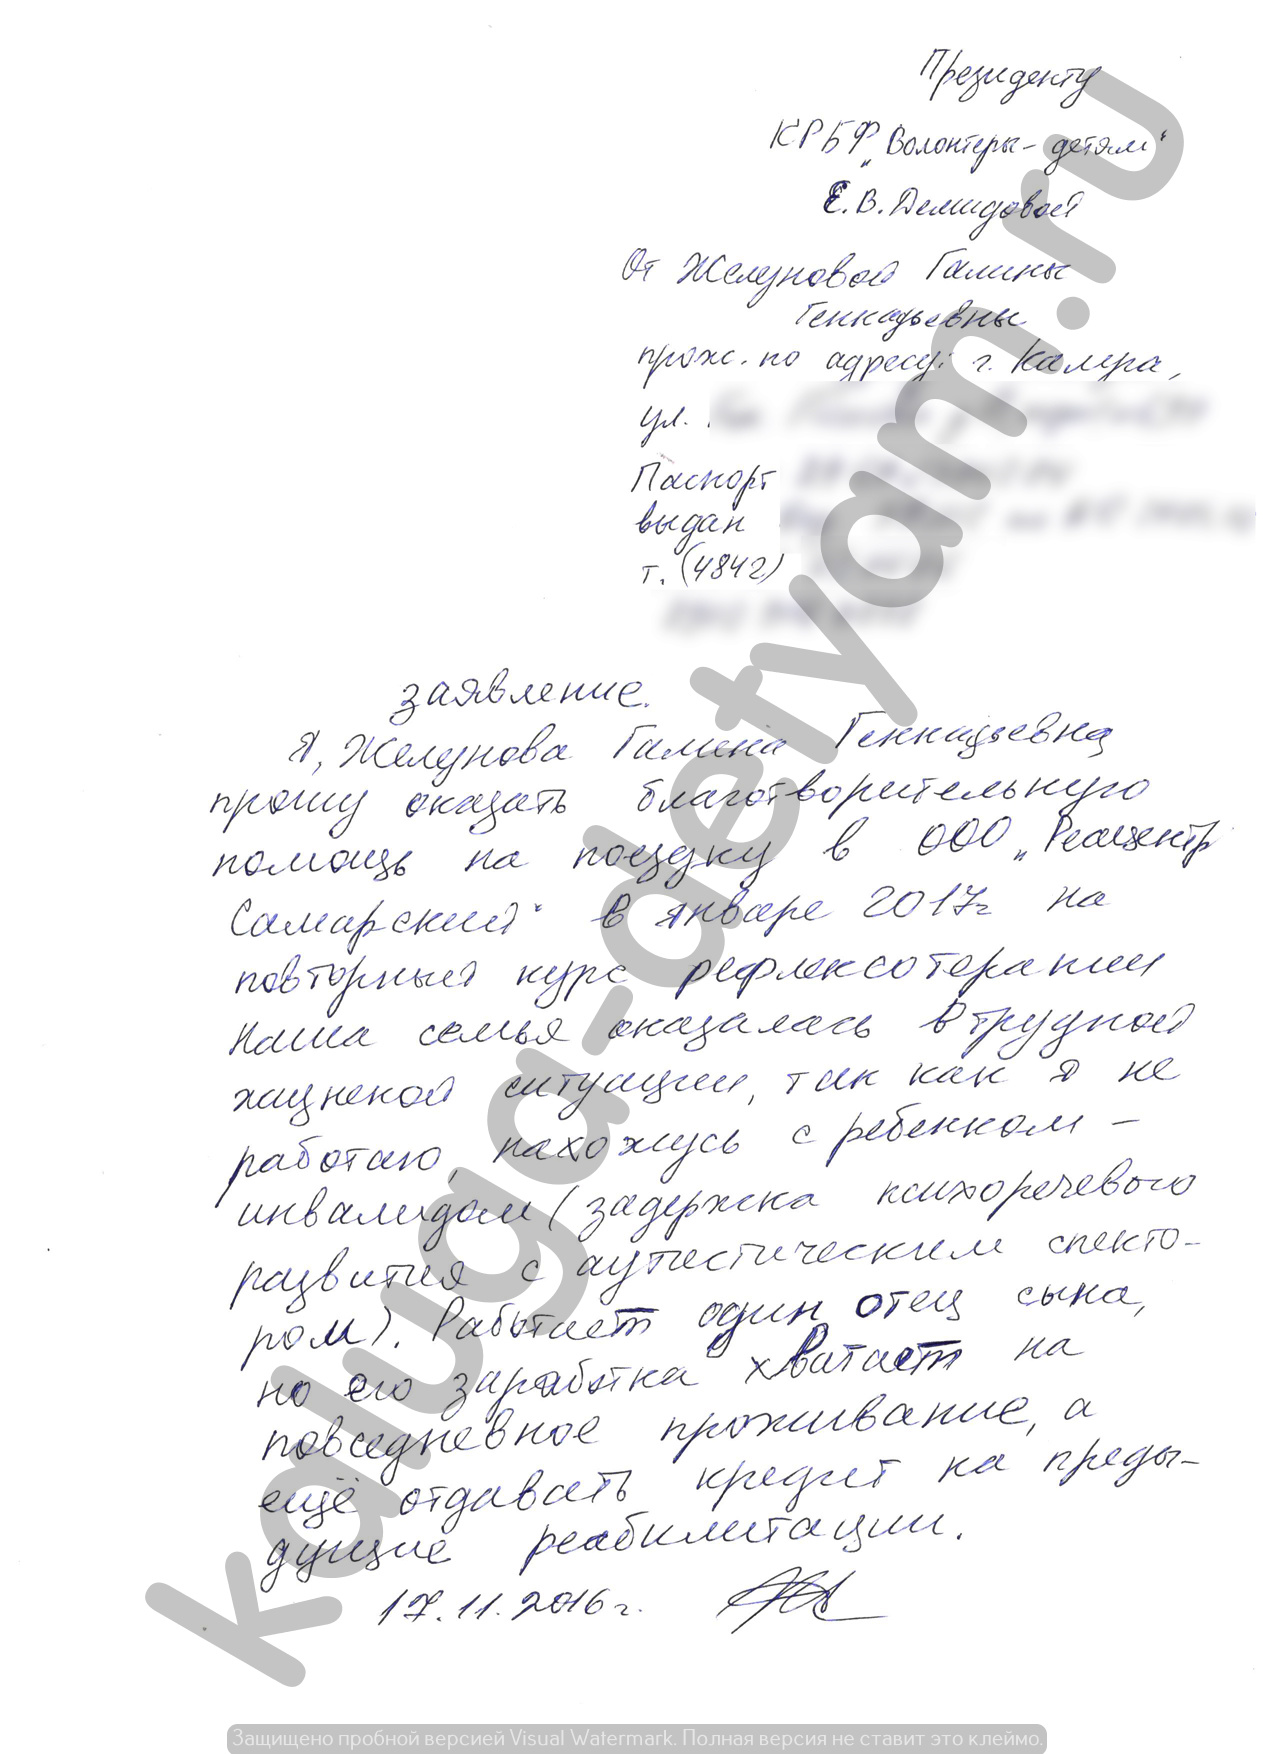 Президенту
КРБФ „Волонтеры-детям“
Е.В.Демидовой
От Желуновой Галины
Геннадьевны
прож. по адресу: г. Калуга,
ул.
Паспорт
выдан
т. (4842)
заявление.
Я, Желунова Галина Геннадьевна
прошу оказать благотворительную
помощь на поездку в ООО „Реацентр
Самарский“ в январе 2017г на
повторный курс рефлексотерапии
Наша семья оказалась в трудной
жизненой ситуации, так как я не
работаю, нахожусь с ребенком –
инвалидом (задержка психоречевого
развития с аутистическим спекто-
ром). Работает один отец сына,
но его заработка хватает на
повседневное проживание, а
ещё отдавать кредит на преды-
дущие реабилитации.
17.11.2016г.
kaluga-detyam.ru
Защищено пробной версией Visual Watermark. Полная версия не ставит это клеймо.